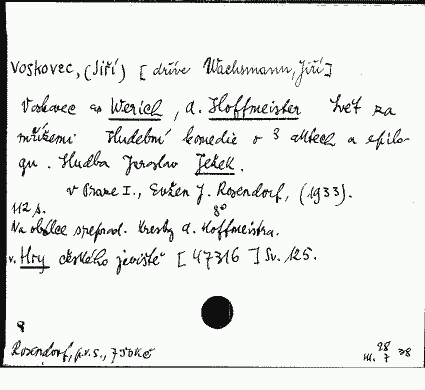 Voskovec, (Jiří) [dříve Wachsmann, Jiří]
Voskovec as Werich, A. Hoffmeister Svět za
mřížemi Hudební komedie o 3 aktech a epilo-
gu. Hudba Jaroslav Ježek.
v Praze I., Evžen J. Rosendorf, (1933).
112 s. 8°
Na obálce Kresby A. Hoffmeistra.
v. Hry českého jeviště [47316] Sv. 125.
Rosendorf, p.v.s.,
28
III. 7 38